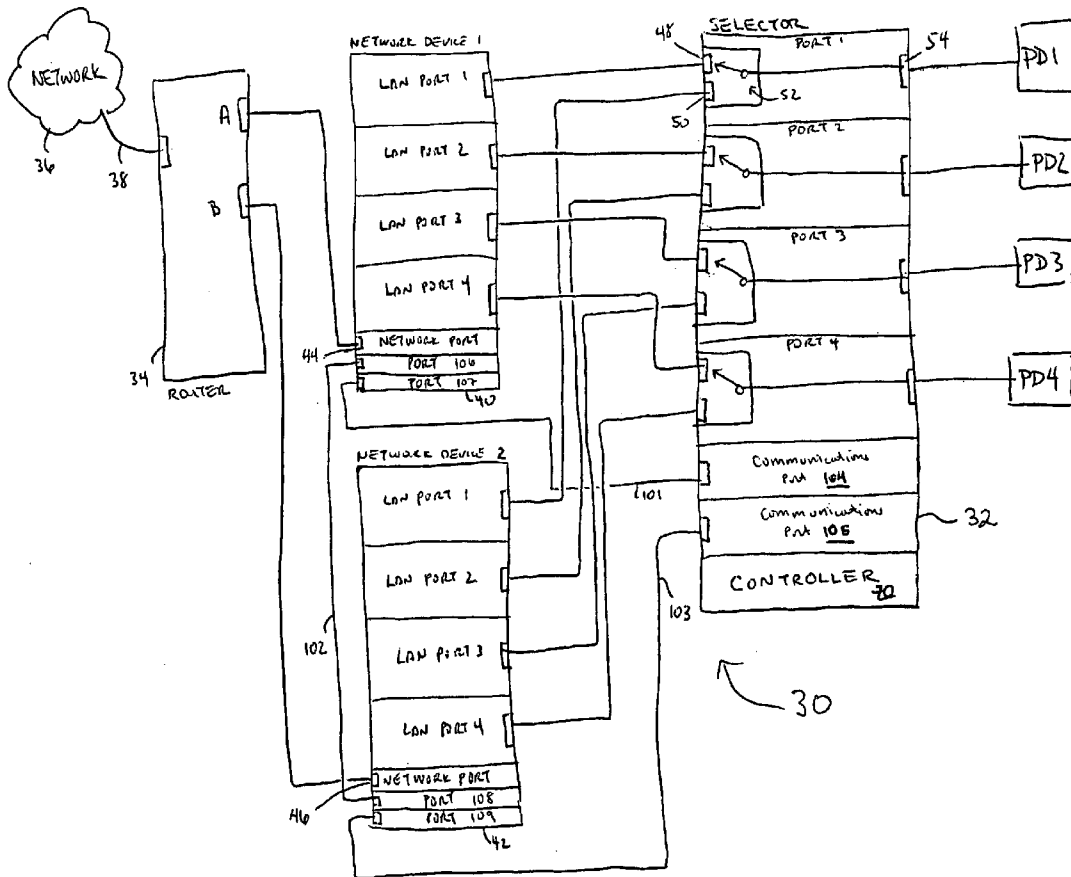 NETWORK
36
38
A
B
34
ROUTER
NETWORK DEVICE 1
LAN PORT 1
LAN PORT 2
LAN PORT 3
LAN PORT 4
NETWORK PORT
PORT 106
PORT 107
44
40
NETWORK DEVICE 2
LAN PORT 1
LAN PORT 2
LAN PORT 3
LAN PORT 4
NETWORK PORT
PORT 108
PORT 109
46
42
102
101
103
SELECTOR
PORT 1
48
50
52
54
PORT 2
PORT 3
PORT 4
Communications
Port 104
Communications
Port 105
CONTROLLER
70
32
30
PD1
PD2
PD3
PD4